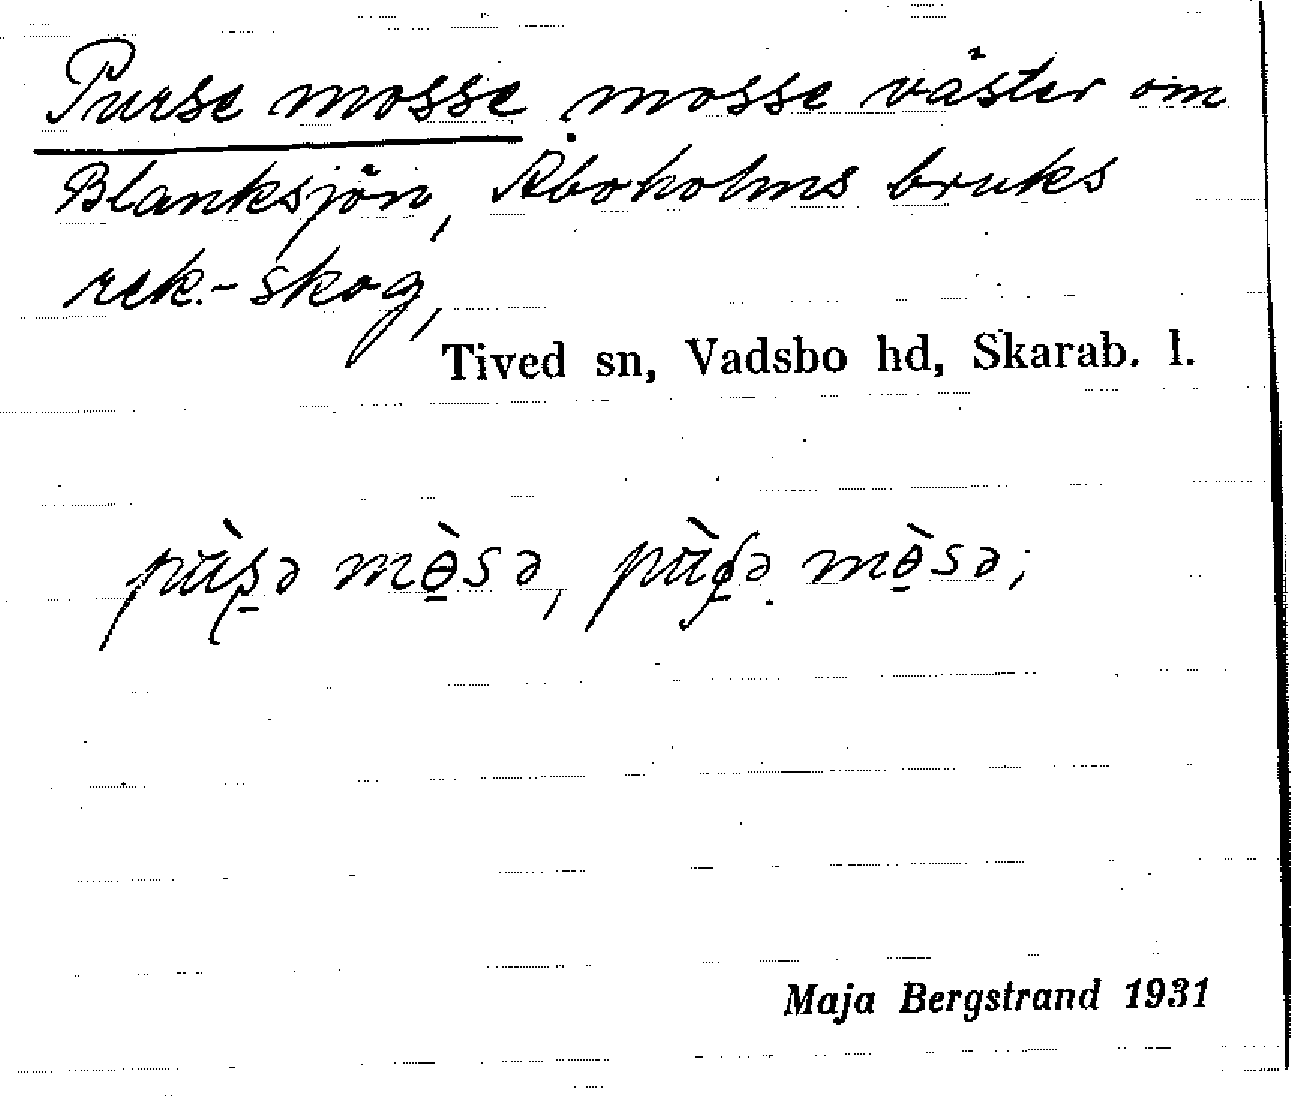 Purse mosse, mosse väster om
Blanksjön, Åboholms bruks
rek.-skog,
Tived sn, Vadsbo hd, Skarab. l.
mɵ̀sə, mɵ̀sə;
Maja Bergstrand 1931